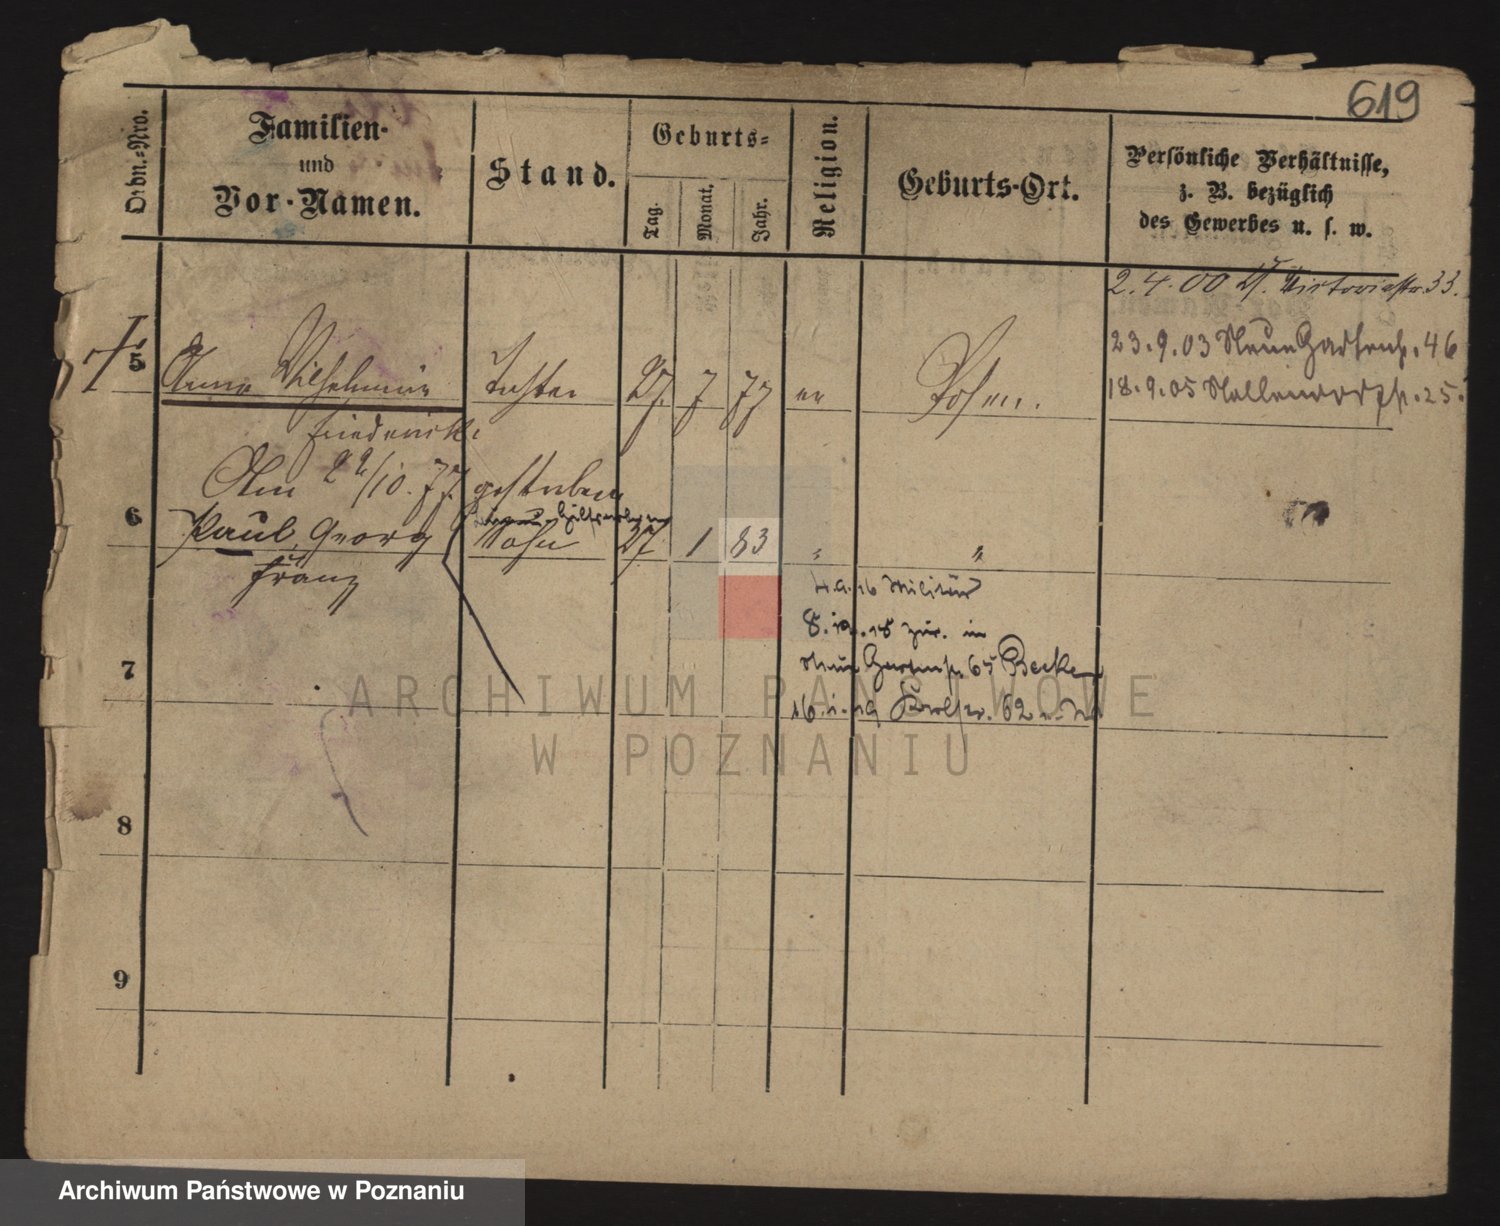 619
Ordn.-Nro.
Familien-
und
Vor-Namen.
Stand.
Geburts-
Tag.
Monat.
Jahr.
Religion.
Geburts-Ort.
Persönliche Verhältnisse,
z. B. bezüglich
des Gewerbes u. s. w.
2.4.00 Victoriastr 33.
23.9.03 Neue Gartenstr. 46
18.9.05 Nollendorfstr. 25.
5 Anna Wilhelmine Tochter 27. 7 77 ev Posen.
Friederike
Am 22/10. 77. gestorben
6 Paul Georg Sohn 27 1 83 " "
Franz
Militär
8. 12. 18 zur. in
Neue Gartenstr. 65 Becker
16. 1. 19 62
7
8
9
ARCHIWUM PAŃSTWOWE
W POZNANIU
Archiwum Państwowe w Poznaniu